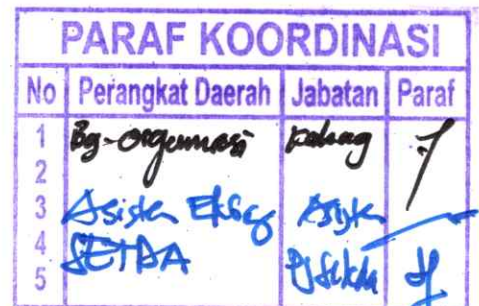 PARAF KOORDINASI
No Perangkat Daerah Jabatan Paraf
1 Bg-Organisasi Kabag
2
3 Asisten Ekbag Asisten
4 SETDA Pj Sekda
5